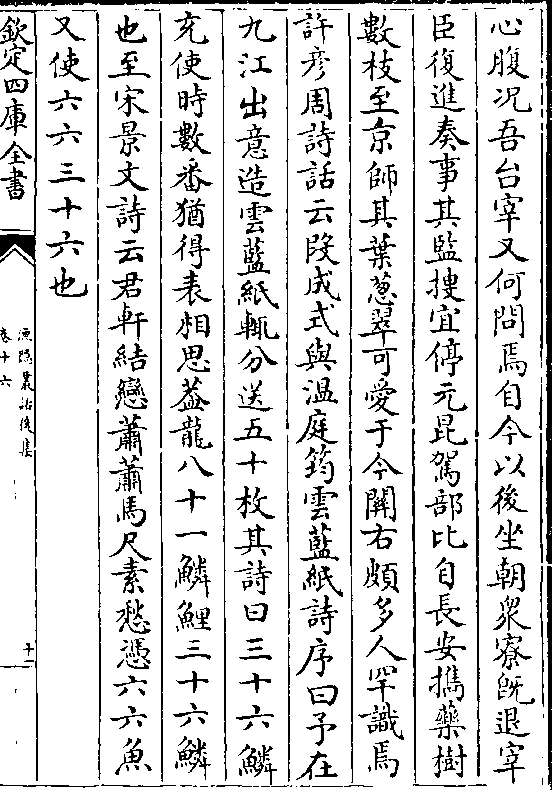 心腹况吾台宰又何間焉自今以後坐朝衆寮旣退宰
臣復進奏事其監搜宜停元昆駕部比自長安擕藥樹
數枝至京師其葉葱翠可愛于今關右頗多人罕識焉
許彦周詩話云段成式與温庭筠雲藍紙詩序曰予在
九江出意造雲藍紙輒分送五十枚其詩曰三十六鱗
充使時數番猶得表相思葢龍八十一鱗鯉三十六鱗
也至宋景文詩云君軒結戀蕭蕭馬尺素愁憑六六魚
又使六六三十六也
欽定四庫全書
漁隱叢話後集
卷十六
十二